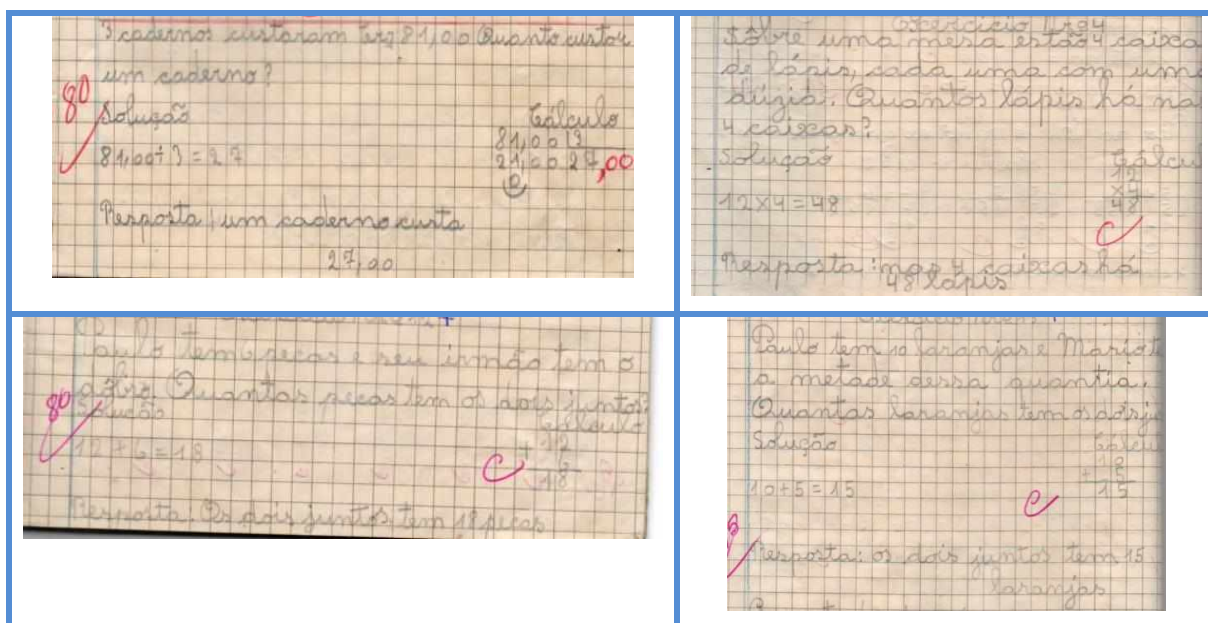 3 cadernos custaram 81,00 Quanto custou
um caderno?
80
Solução Cálculo
81,00 3
81,00÷3=27 21,00 27,00
0
Resposta: um caderno custa
27,00
Exercício
Sôbre uma mesa estão 4 caixa
de lápis, cada uma com uma
dúzia. Quantos lápis há na
4 caixas?
Solução Cálcu
12
x4
12x4=48 48
C
Resposta: nas 4 caixas há
48 lápis
Paulo tem 6 peças e seu irmão tem o
Quantas peças tem os dois juntos?
80
Solução Cálculo
12
12+6=18 +6
C 18
Resposta: Os dois juntos tem 18 peças
Paulo tem 10 laranjas e Mario t
a metade dessa quantia.
Quantas laranjas tem os dois j
Solução Cálcu
10
+5
10+5=15 15
C
Resposta: os dois juntos tem 15
laranjas